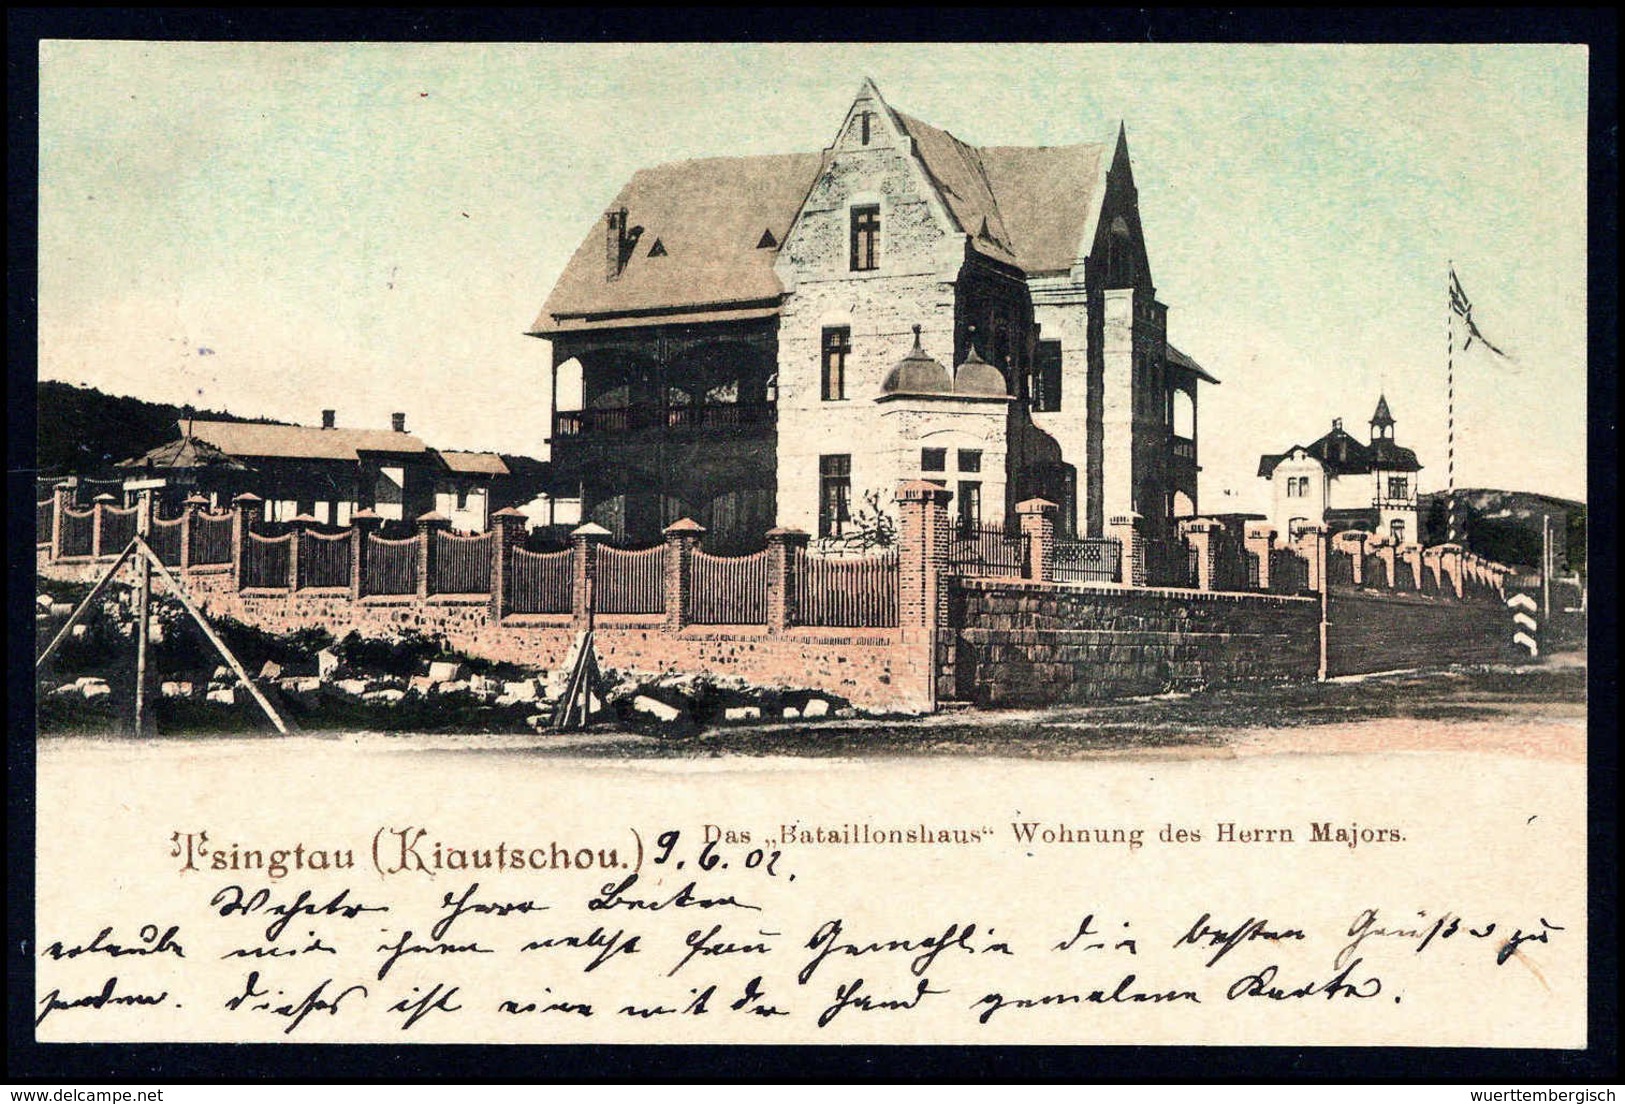 Tsingtau (Kiautschou.) Das „Bataillonshaus“ Wohnung des Herrn Majors.
9. 6. 02.
Wehrter Herr Becker
erlaube mir ihnen nebst frau Gemahlin die besten Grüße zu
senden. dieses ist eine mit der Hand gemalene Karte.
© delcampe.net
wuerttembergisch